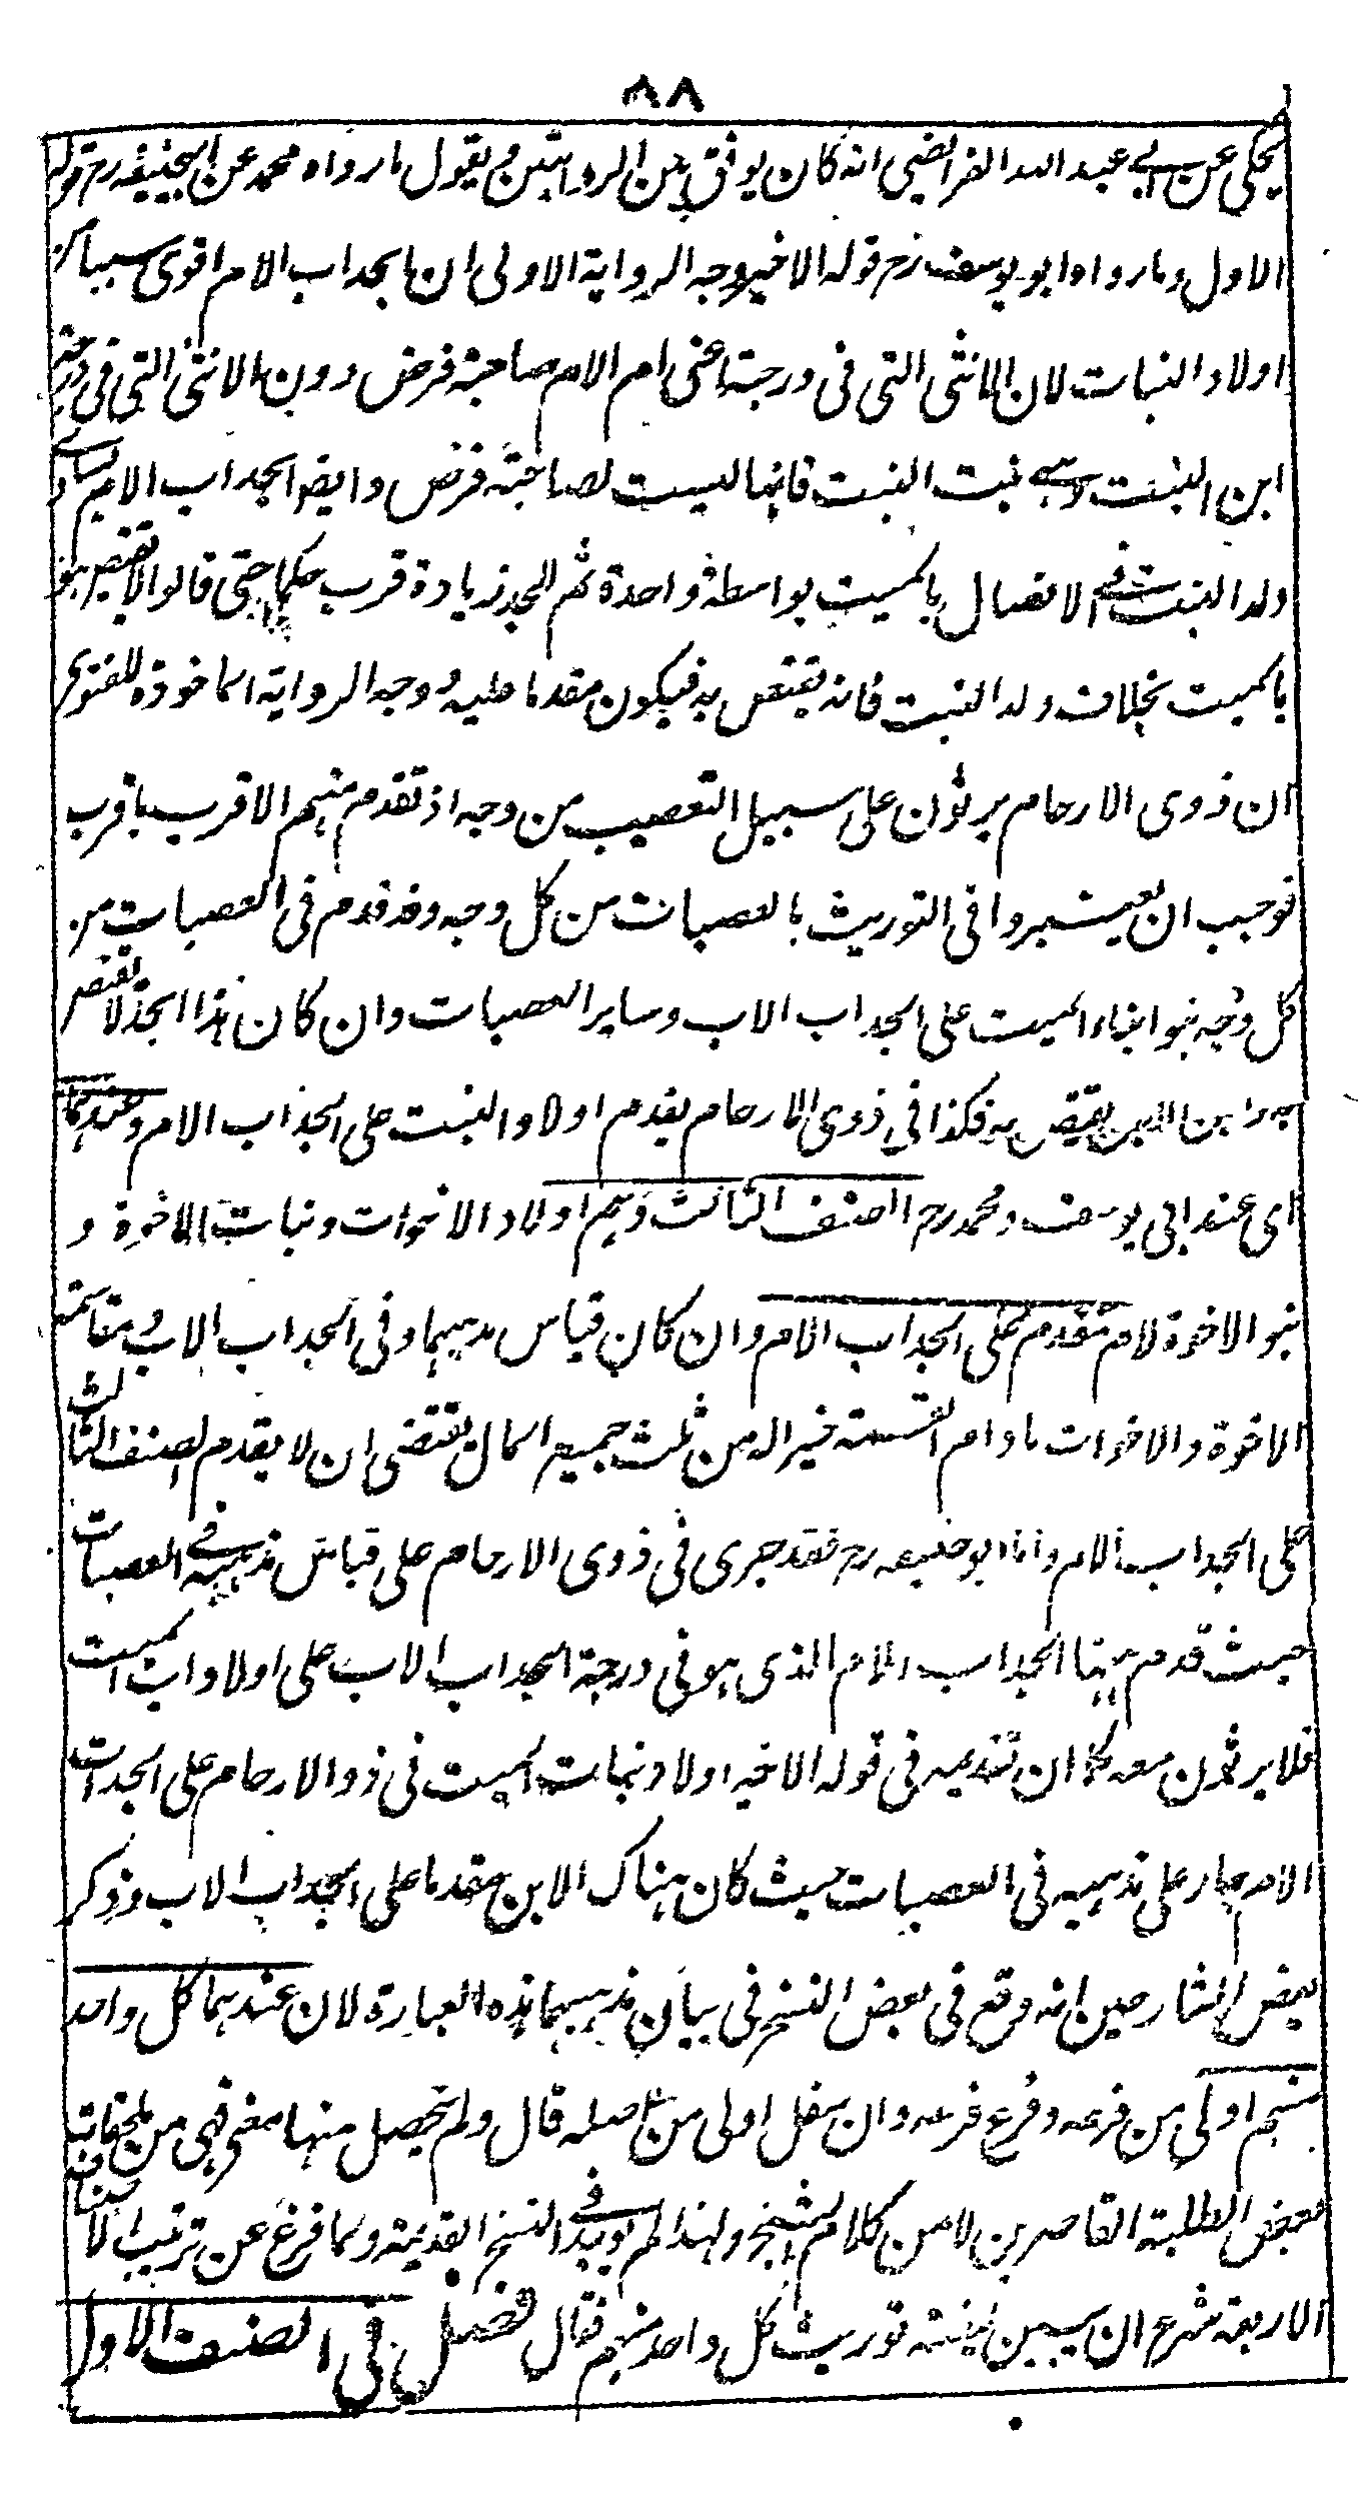 ٨٨
يحكى عن ابي عبد الله الفرائضي انه كان يوفق بين الروايتين ويقول ما رواه محمد عن ابيحنيفة رح قوله
الاول وما رواه ابو يوسف رح قوله الاخير وجه الرواية الاولى ان الجد اب الام اقوى سببا من
اولاد البنات لان الانثى التي في درجته اعنى ام الام صاحبة فرض دون الانثى التي في درجة
ابن البنت وهي بنت البنت فانها ليست لصاحبة فرض وايضا الجد اب الام يساوي
ولد البنت في الاتصال بالميت بواسطة واحدة ثم للجد زيادة قرب حكما حتى قالوا لا يقتص هو
بالميت بخلاف ولد البنت فانه يقتص به فيكون مقدما عليه ووجه الرواية الماخوذة للفتوى
ان ذوى الارحام يرثون على سبيل التعصيب من وجه اذ تقدم منهم الاقرب فاقرب
فوجب ان يعتبروا في التوريث بالعصبات من كل وجه وقد قدم في العصبات من
كل وجه بنو ابناء الميت على الجد اب الاب وساير العصبات وان كان هذا الجد لا يقتص
به وابن الابن يقتص به فكذا في ذوى الارحام يقدم اولاد البنت على الجد اب الام وعندهما
اى عند ابي يوسف ومحمد رح الصنف الثالث وهم اولاد الاخوات وبنات الاخوة و
بنو الاخوة لام مقدم على الجد اب الام وان كان قياس مذهبهما في الجد اب الاب ومقاسمته
الاخوة والاخوات ما دام القسمة خيرا له من ثلث جميع المال يقتضى ان لا يقدم الصنف الثالث
على الجد اب الام واما ابو حنيفة رح فقد جرى في ذوى الارحام على قياس مذهبه في العصبات
حيث قدم ههنا الجد اب الام الذي هو في درجة الجد اب الاب على اولاد اب الميت
فلا يرثون معه كما ان تقديمه في قوله الاخير اولاد بنات الميت في ذوالارحام على الجد اب
الام جار على مذهبه في العصبات حيث كان هناك الابن مقدما على الجد اب الاب وذكر
بعض الشارحين انه وقع في بعض النسخ في بيان مذهبهما هذه العبارة لان عندهما كل واحد
منهم اولى من فرعه وفرع فرعه وان سفل اولى من اصله قال ولم يحصل منها معنى فهى من ملحقات
بعض الطلبة القاصرين لا من كلام الشيخ ولهذا لم يوجد في النسخ القديمة ولما فرغ عن ترتيب الاصناف
الاربعة شرع ان يبين كيفية توريث كل واحد منهم فقال فصل في الصنف الاول